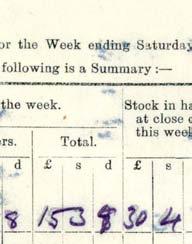 or the Week ending Saturday
following is a Summary :—
the week.
Stock in ha
at close o
this week
rs.
Total.
d £ s d £ s
8 15 3 8 30 4